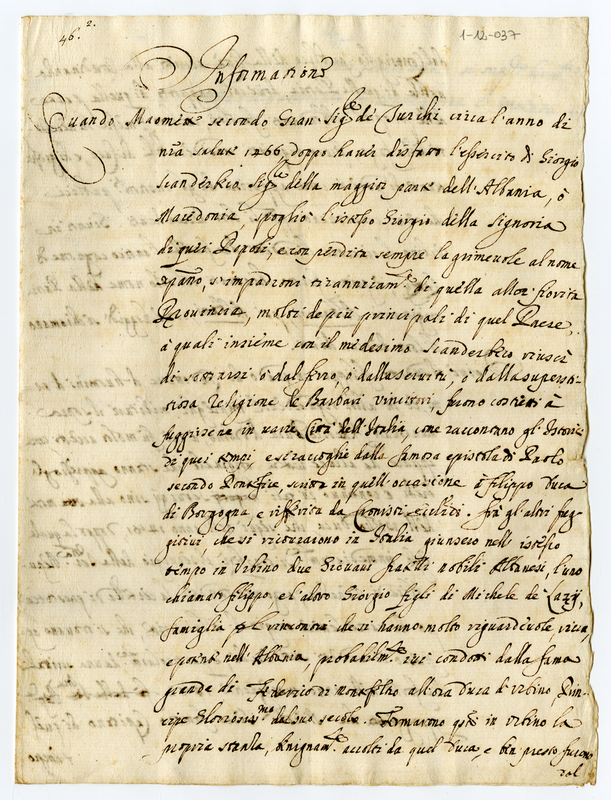 46. 2.
1-12-037
Informatione
Quando Maometo secondo Gran Sig.re de Turchi circa l'anno di
nra salute 1466 doppo haver disfatto l'essercito di Giorgio
Scanderbeo Sig.re della maggior parte dell'Albania, ò
Macedonia, spogliò l'istesso Giorgio della Signoria
di quei Popoli, e con perdita sempre lagrimevole al nome
xpano, s'impadronì tirannicam.te di quella allor fiorita
Provincia, molti de più principali di quel Paese,
à quali insieme con il medesimo Scanderbeo riuscì
di sottrarsi ò dal ferro, ò dalla servitù, ò dalla supersti-
tiosa Religione de Barbari vincitori, furono costretti à
fuggirsene in varie Città dell'Italia, come raccontano gl'Istorici
di quei tempi, e si raccoglie dalla famosa epistola di Paolo
secondo Pontefice, scritta in quell'occasione à filippo Duca
di Borgogna, e rifferita da Cronisti eccl.ci. Frà gl'altri fug-
gitivi, che si ricovrarono in Italia giunsero nell'istesso
tempo in Urbino due Giovani fratelli nobili Albanesi, l'uno
chiamato filippo, e l'altro Giorgio figli di Michele de Lazij,
famiglia che si hanno molto riguardevole, ricca,
e potente nell'Albania, probabilm.te ivi condotti dalla fama
grande di Federico di Montefeltro all'ora Duca di Urbino, Prin-
cipe Gloriosiss.mo del suo secolo. Fermarono q.sti in Urbino la
propria stanza, benignam.te accolti da quel Duca, e ben presto furono
dal